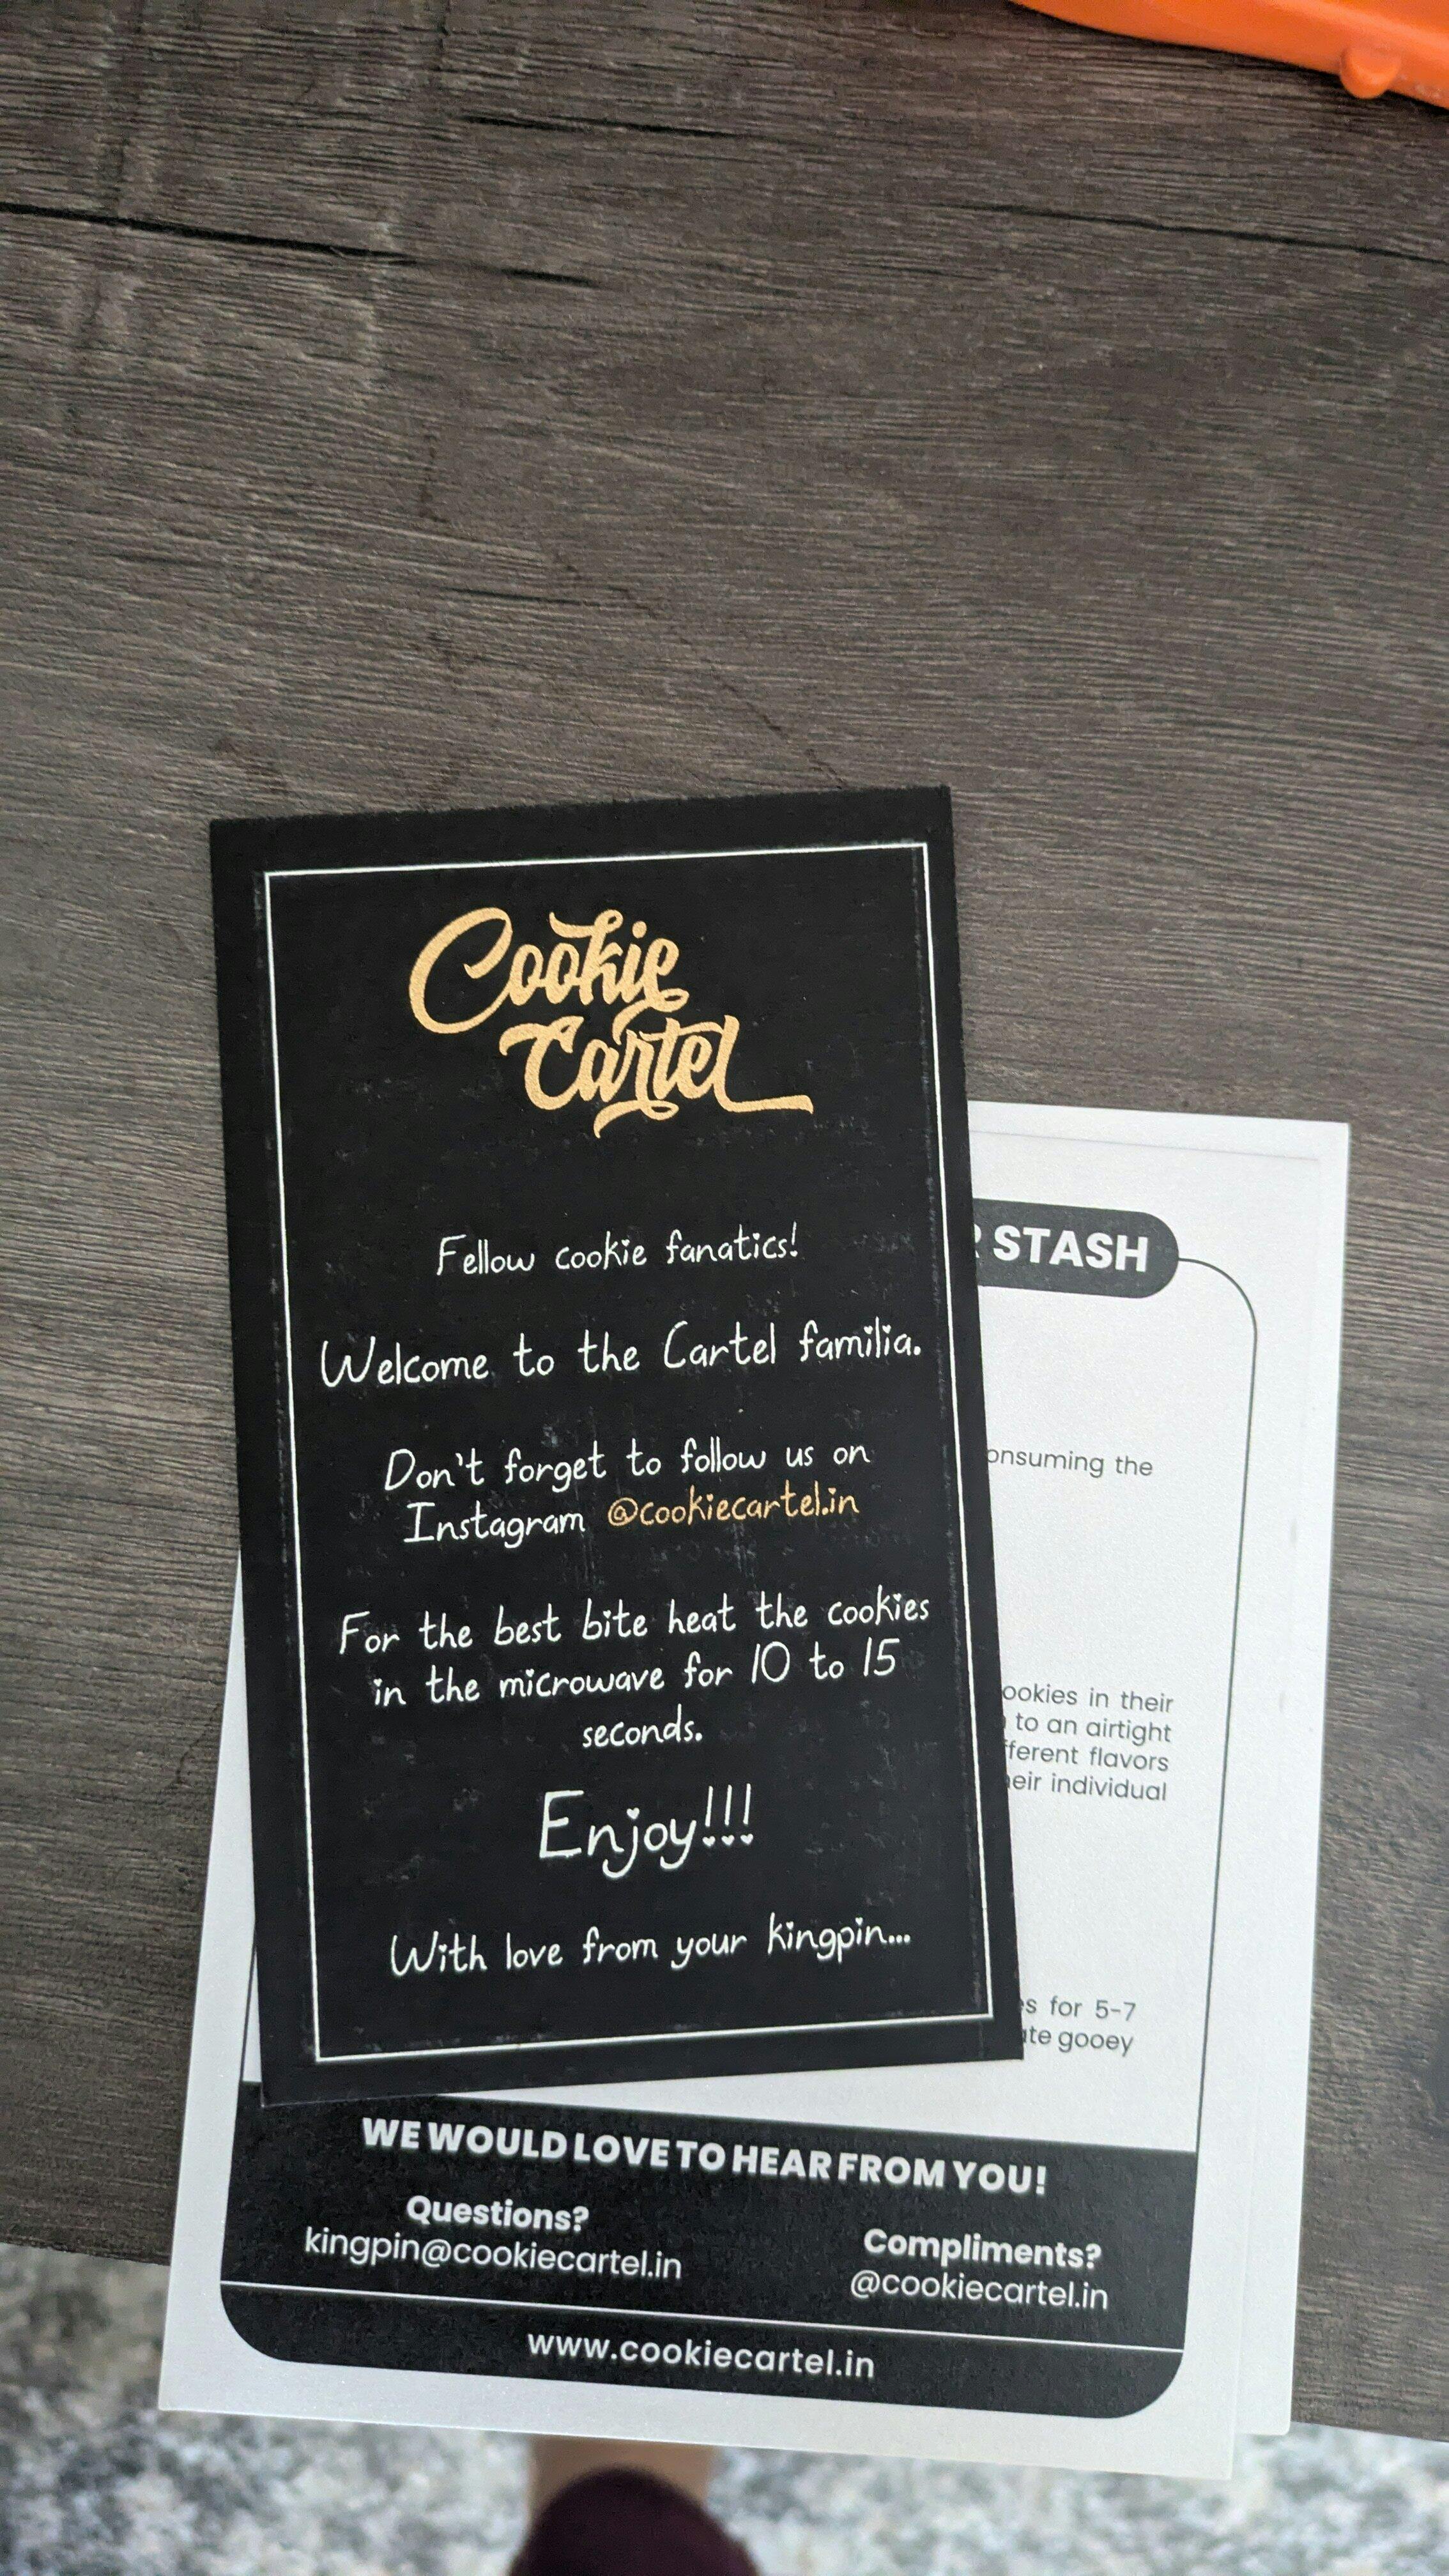 Cookie
Cartel
Fellow cookie fanatics!
Welcome to the Cartel familia.
Don't forget to follow us on
Instagram @cookiecartel.in
For the best bite heat the cookies
in the microwave for 10 to 15
seconds.
Enjoy!!!
With love from your kingpin...
STASH
the
in their
to an airtight
flavors
individual
for 5-7
gooey
WE WOULD LOVE TO HEAR FROM YOU!
Questions?
kingpin@cookiecartel.in
Compliments?
@cookiecartel.in
www.cookiecartel.in